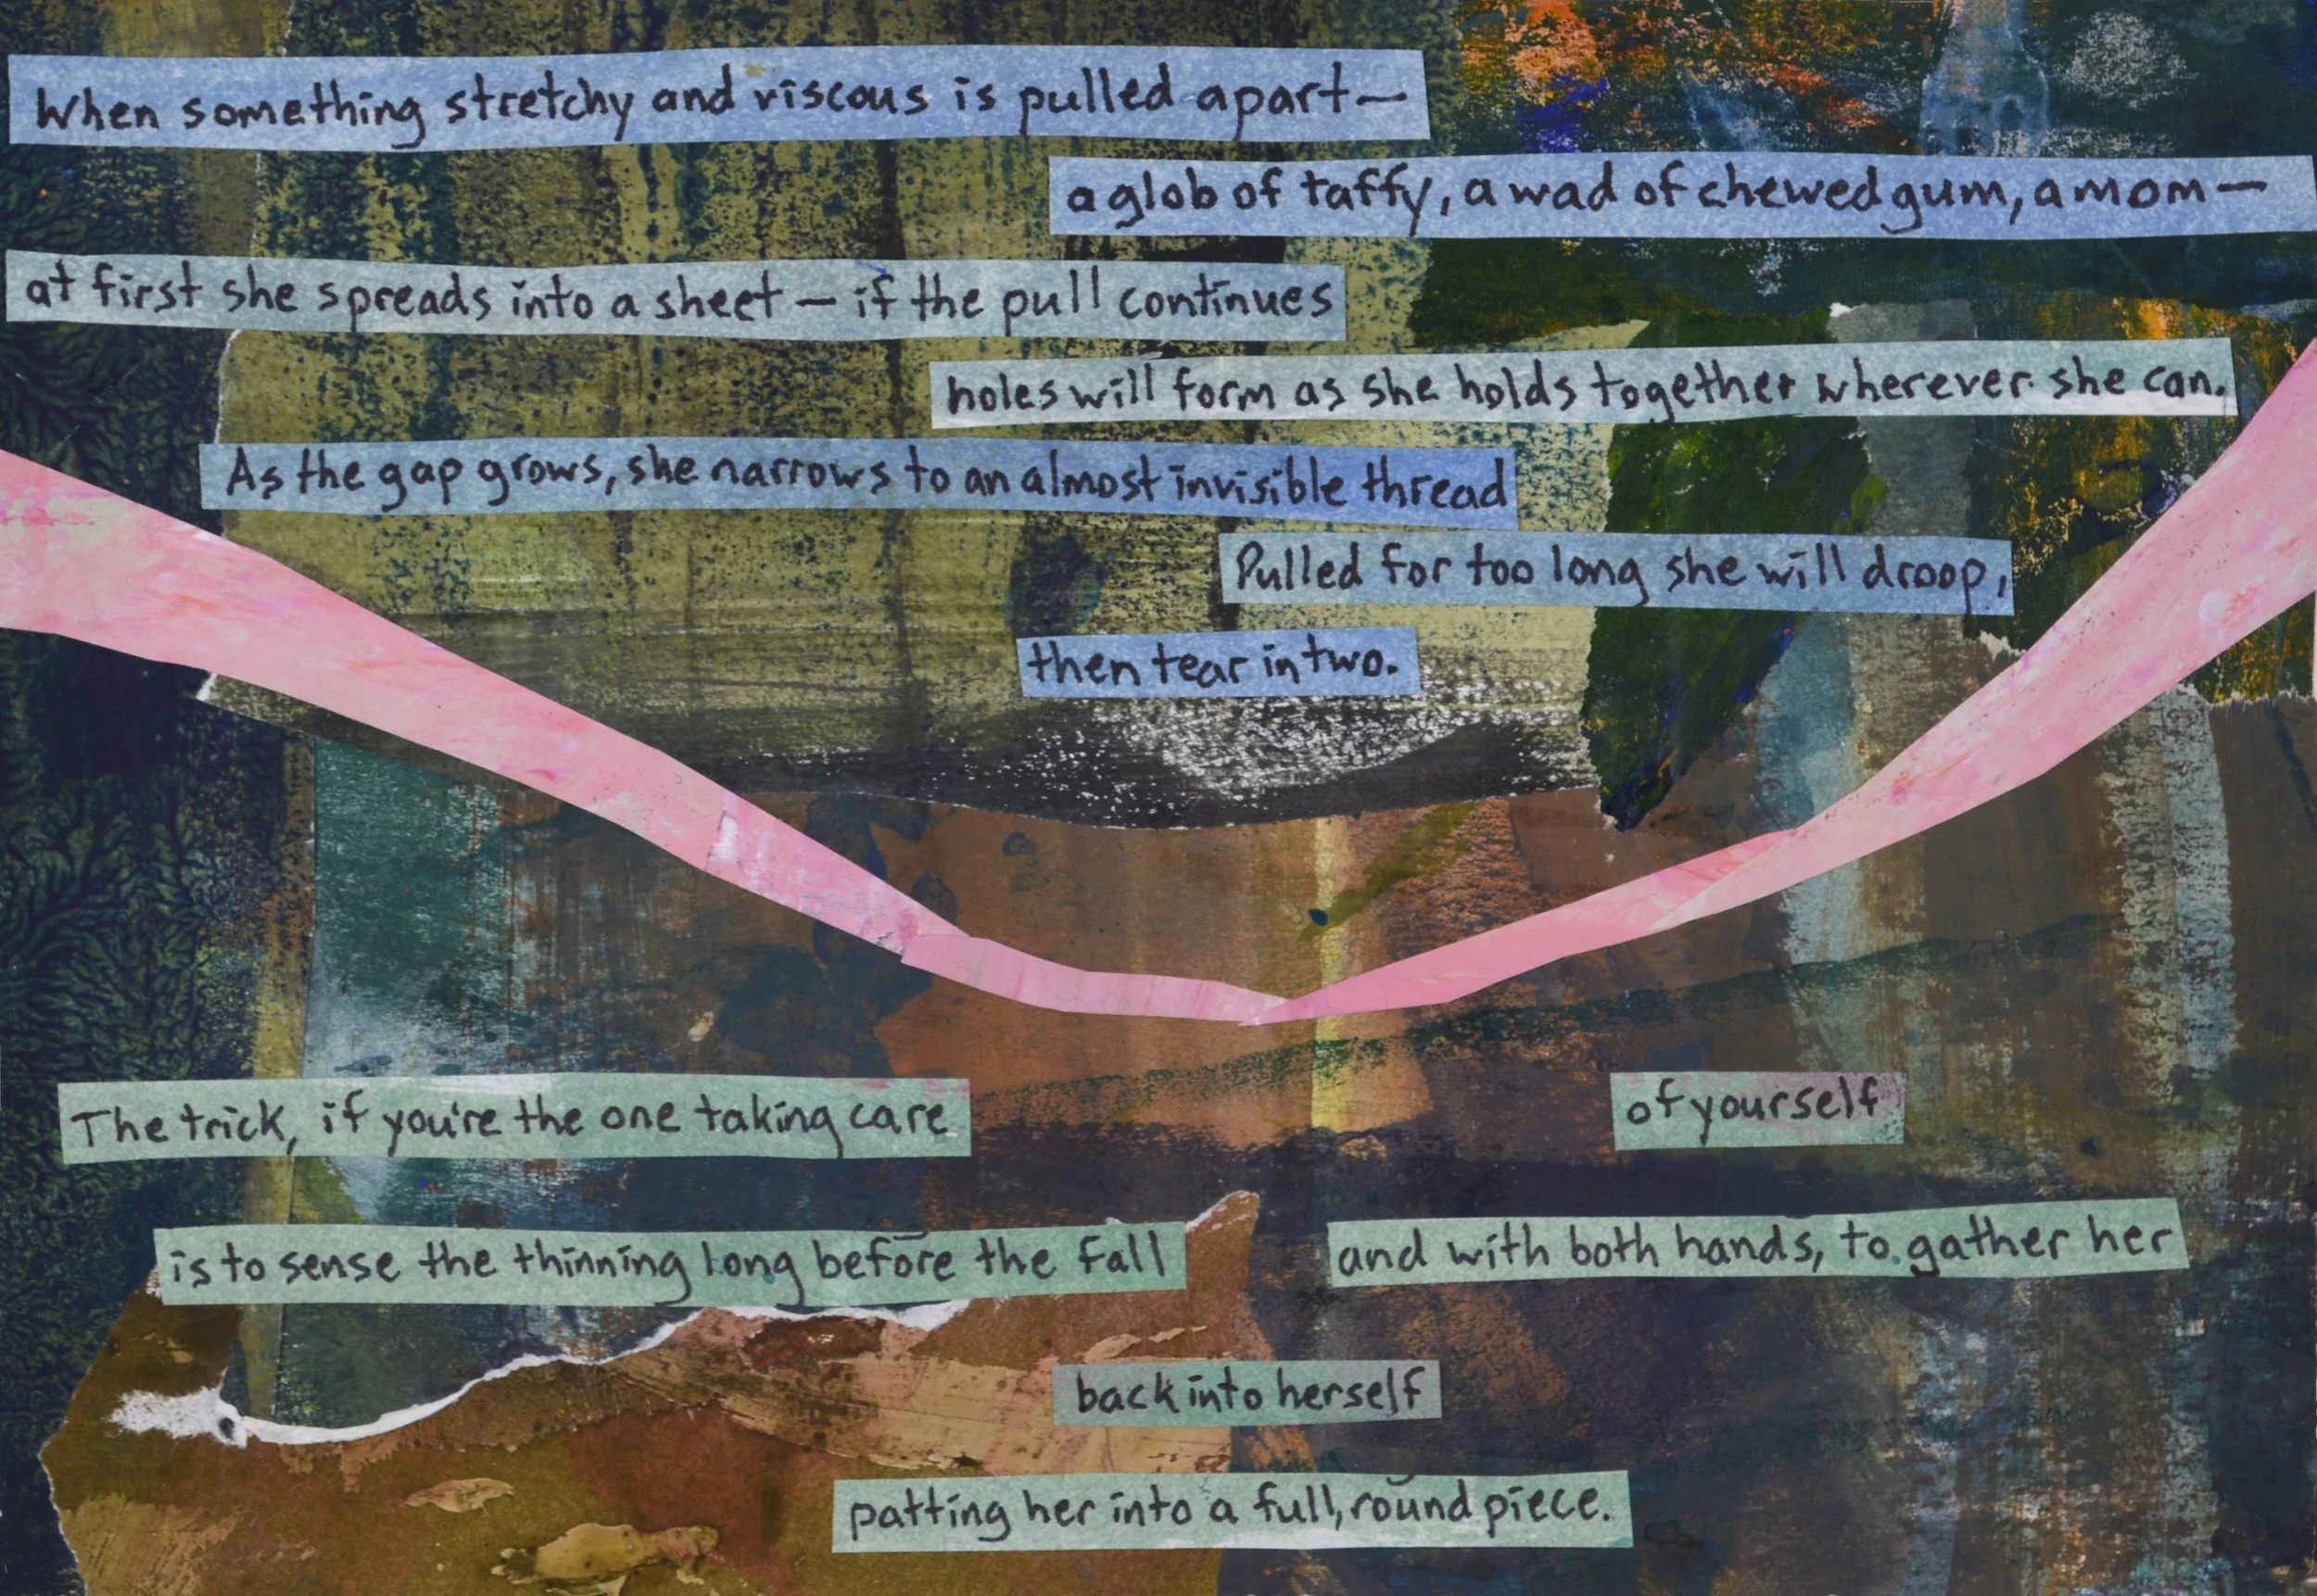 When something stretchy and viscous is pulled apart—
a glob of taffy, a wad of chewed gum, a mom—
at first she spreads into a sheet — if the pull continues
holes will form as she holds together wherever she can.
As the gap grows, she narrows to an almost invisible thread
Pulled for too long she will droop,
then tear in two.
The trick, if you're the one taking care
of yourself
is to sense the thinning long before the fall
and with both hands, to gather her
back into herself
patting her into a full, round piece.